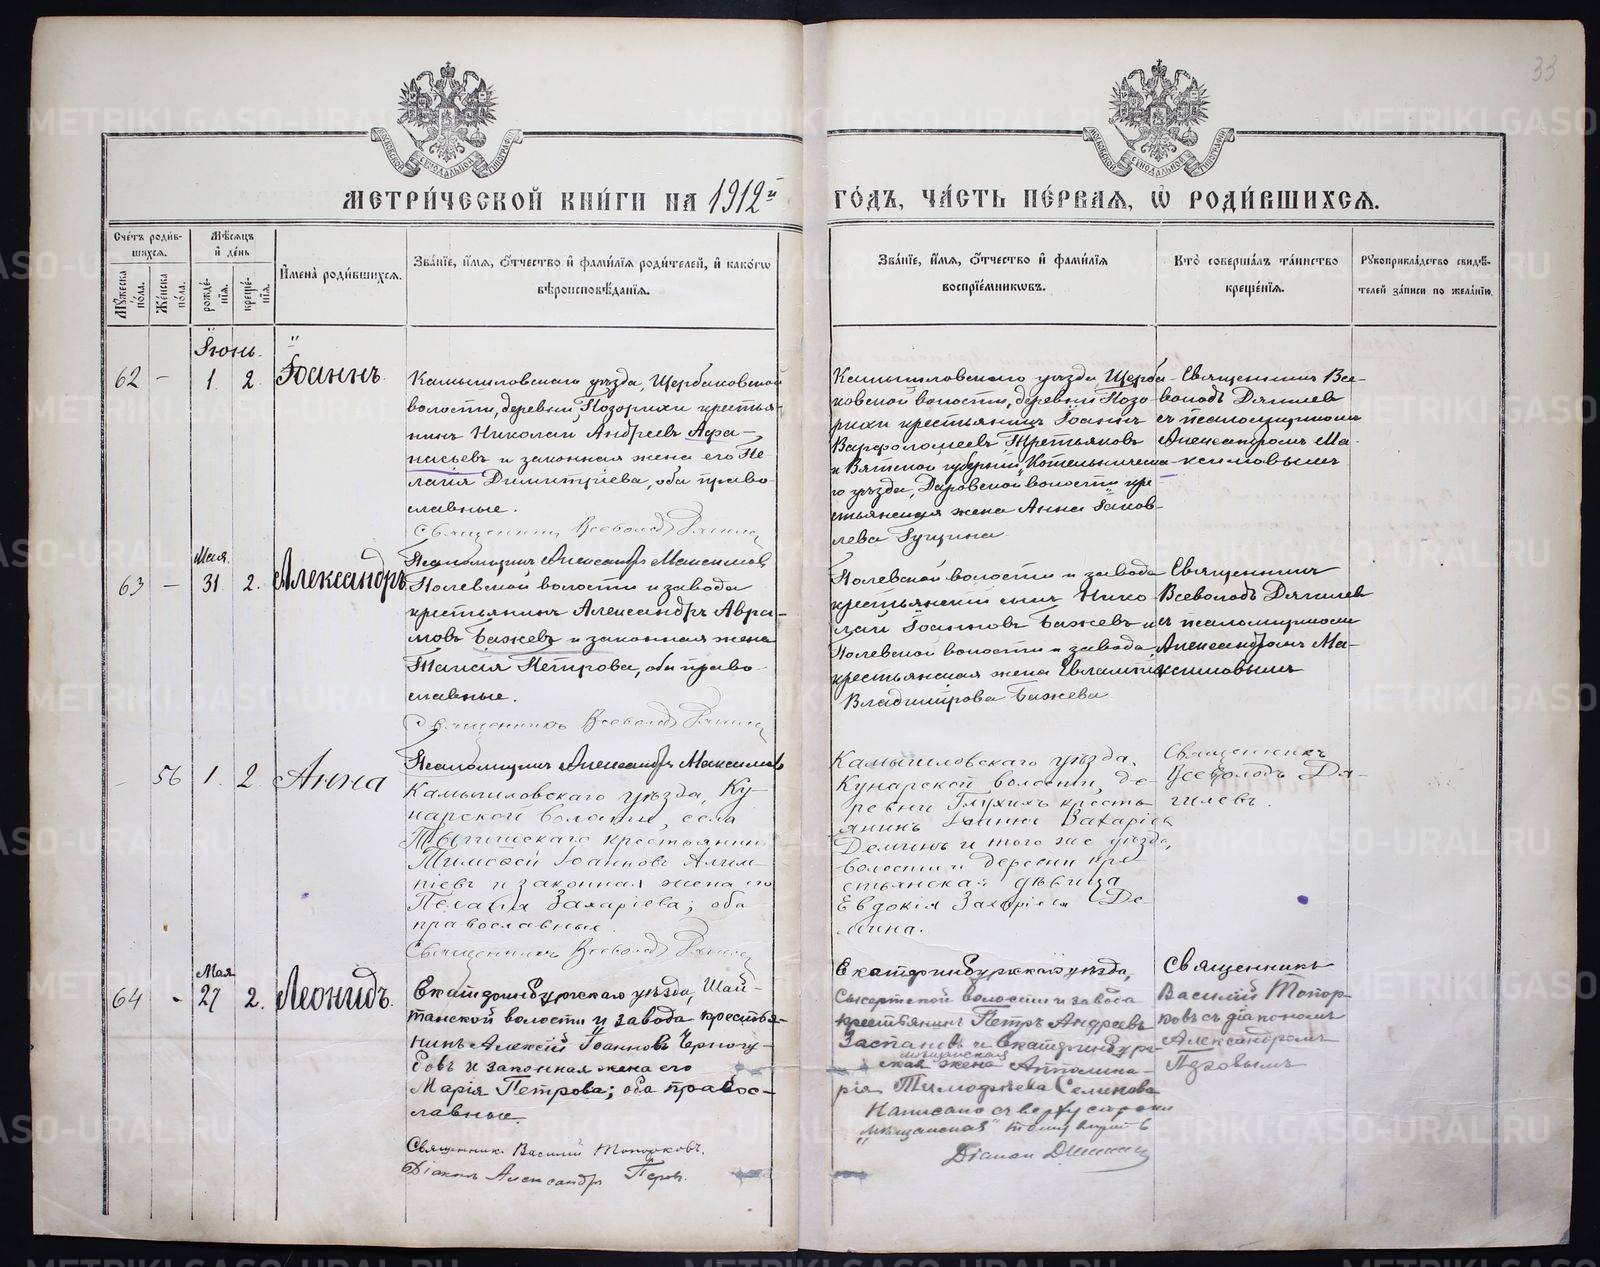 33
МОСКОВСКОЙ СѴНОДАЛЬНОЙ ТИПОГРАФІИ
МОСКОВСКОЙ СѴНОДАЛЬНОЙ ТИПОГРАФІИ
МЕТРИ́ЧЕСКОЙ КНИ́ГИ НА 1912й ГО́ДЪ, ЧА́СТЬ ПЕ́РВАЯ, Ѡ҆ РОДИ́ВШИХСѦ.
Сче́тъ роди́в-
шихсѧ.
Мѣ́сѧцъ
и҆ де́нь
Мꙋ́жеска по́ла.
Же́нска по́ла.
рожде́-
нїѧ.
креще́-
нїѧ.
И҆мена̀ роди́вшихсѧ.
Зва́нїе, и҆́мѧ, ѻ҆́тчество и҆ фами́лїѧ роди́телей, и҆ како́гѡ
вѣроисповѣ́данїѧ.
Зва́нїе, и҆́мѧ, ѻ҆́тчество и҆ фами́лїѧ
воспрїе́мникѡвъ.
Кто̀ соверша́лъ та́инство
креще́нїѧ.
Рꙋкоприкла́дство свидѣ́-
телей за́писи по жела́нїю.
Іюнь.
62 - 1. 2. Іоаннъ.
Камышловскаго уѣзда, Щербаковской
волости, деревни Позарихи крестья-
нинъ Николай Андреевъ Афа-
насьевъ и законная жена его Пе-
лагія Димитріева, оба право-
славные.
Священникъ Всеволодъ Дягилев
Псаломщикъ Александръ Максимов
Камышловскаго уѣзда Щерба-
ковской волости, деревни Поза-
рихи крестьянинъ Іоаннъ
Варфоломеевъ Третьяковъ
и Вятской губерніи, Котельническа-
го уѣзда, Даровской волости кре-
стьянская жена Анна Іаков-
лева Гущина
Священникъ Все-
володъ Дягилев
съ псаломщикомъ
Александромъ Ма-
ксимовымъ
Мая.
63 - 31 2. Александръ
Полевской волости и завода
крестьянинъ Александръ Авра-
мовъ Бажевъ и законная жена
Таисія Петрова, оба право-
славные.
Священникъ Всеволодъ Дягилев
Псаломщикъ Александръ Максимов
Полевской волости и завода
крестьянскій сынъ Нико-
лай Іоанновъ Бажевъ и
Полевской волости и завода
крестьянская жена Евлампія
Владимірова Бажева
Священникъ
Всеволодъ Дягилев
съ псаломщикомъ
Александромъ Ма-
ксимовымъ
- 56 1. 2 Анна
Камышловскаго уѣзда, Ку-
нарской волости, села
крестьянинъ
Тимофей Іоанновъ Алим-
піевъ и законная жена его
Пелагія Захаріева; оба
православные.
Священникъ Всеволодъ Дягилев
Камышловскаго уѣзда,
Кунарской волости, де-
ревни Глухихъ кресть-
янинъ Іоаннъ Захаріевъ
Деминъ и того же уѣзда,
волости и деревни кре-
стьянская дѣвица
Евдокія Захаріева Де-
мина.
Священникъ
Всеволодъ Дя-
гилевъ.
Мая
64 - 27 2. Леонидъ.
Екатеринбургскаго уѣзда, Шай-
танской волости и завода крестья-
нинъ Алексій Іоанновъ Черногу-
бовъ и законная жена его
Марія Петрова; оба правос-
лавные.
Священникъ Василій Топорковъ.
Діаконъ Александръ
Екатеринбургскаго уѣзда,
Сысертской волости и завода
крестьянинъ Петръ Андреевъ
Заспановъ и Екатеринбург-
мѣщанская
ская жена Аполлина-
рія Тимофеева Селинова
Написано съ верху строки
„мѣщанская" тому вѣрить
Діаконъ
Священникъ
Василій Топор-
ковъ съ діакономъ
Александромъ